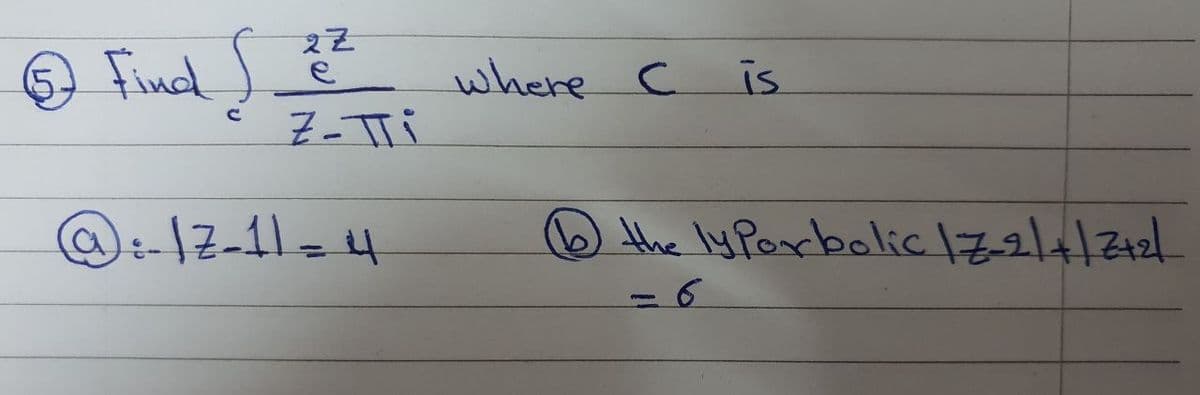 ⑤ Find ∫c e^2Z / Z-πi where C is
ⓐ:-|Z-1|=4 ⓑ the lyPorbolic |Z-2|+|Z+2|
= 6